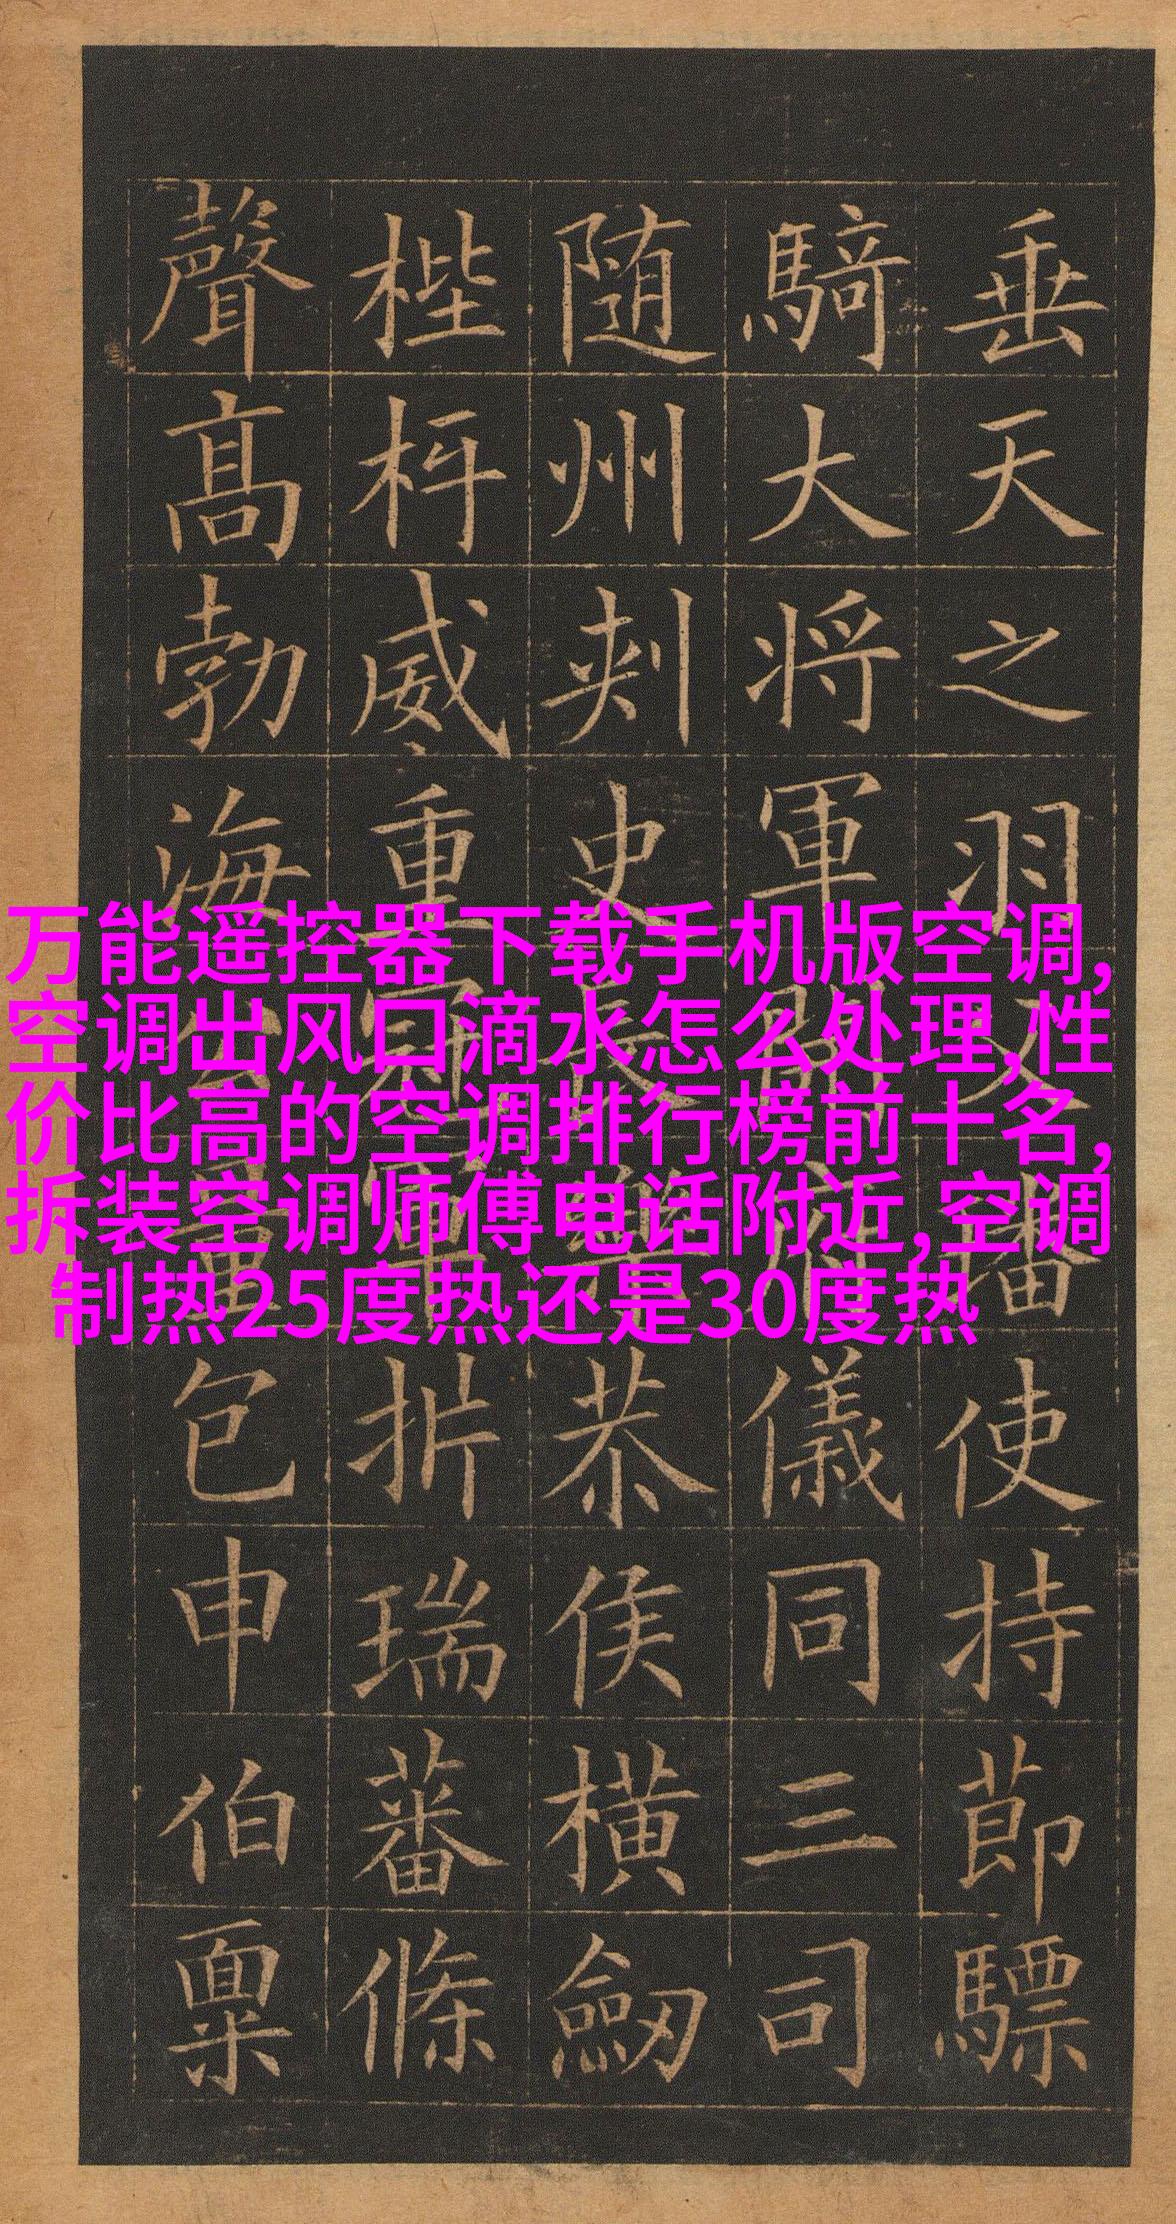 万能遥控器下载手机版空调,
空调出风口滴水怎么处理,性
价比高的空调排行榜前十名,
拆装空调师傅电话附近,空调
制热25度热还是30度热
垂天之羽父璠使持節驃
騎大将軍開府儀同三司
随州刾史長樂恭侯橫劒
梐枅威重冠軍折瑞蕃條
聲高勃海公量包申伯稟